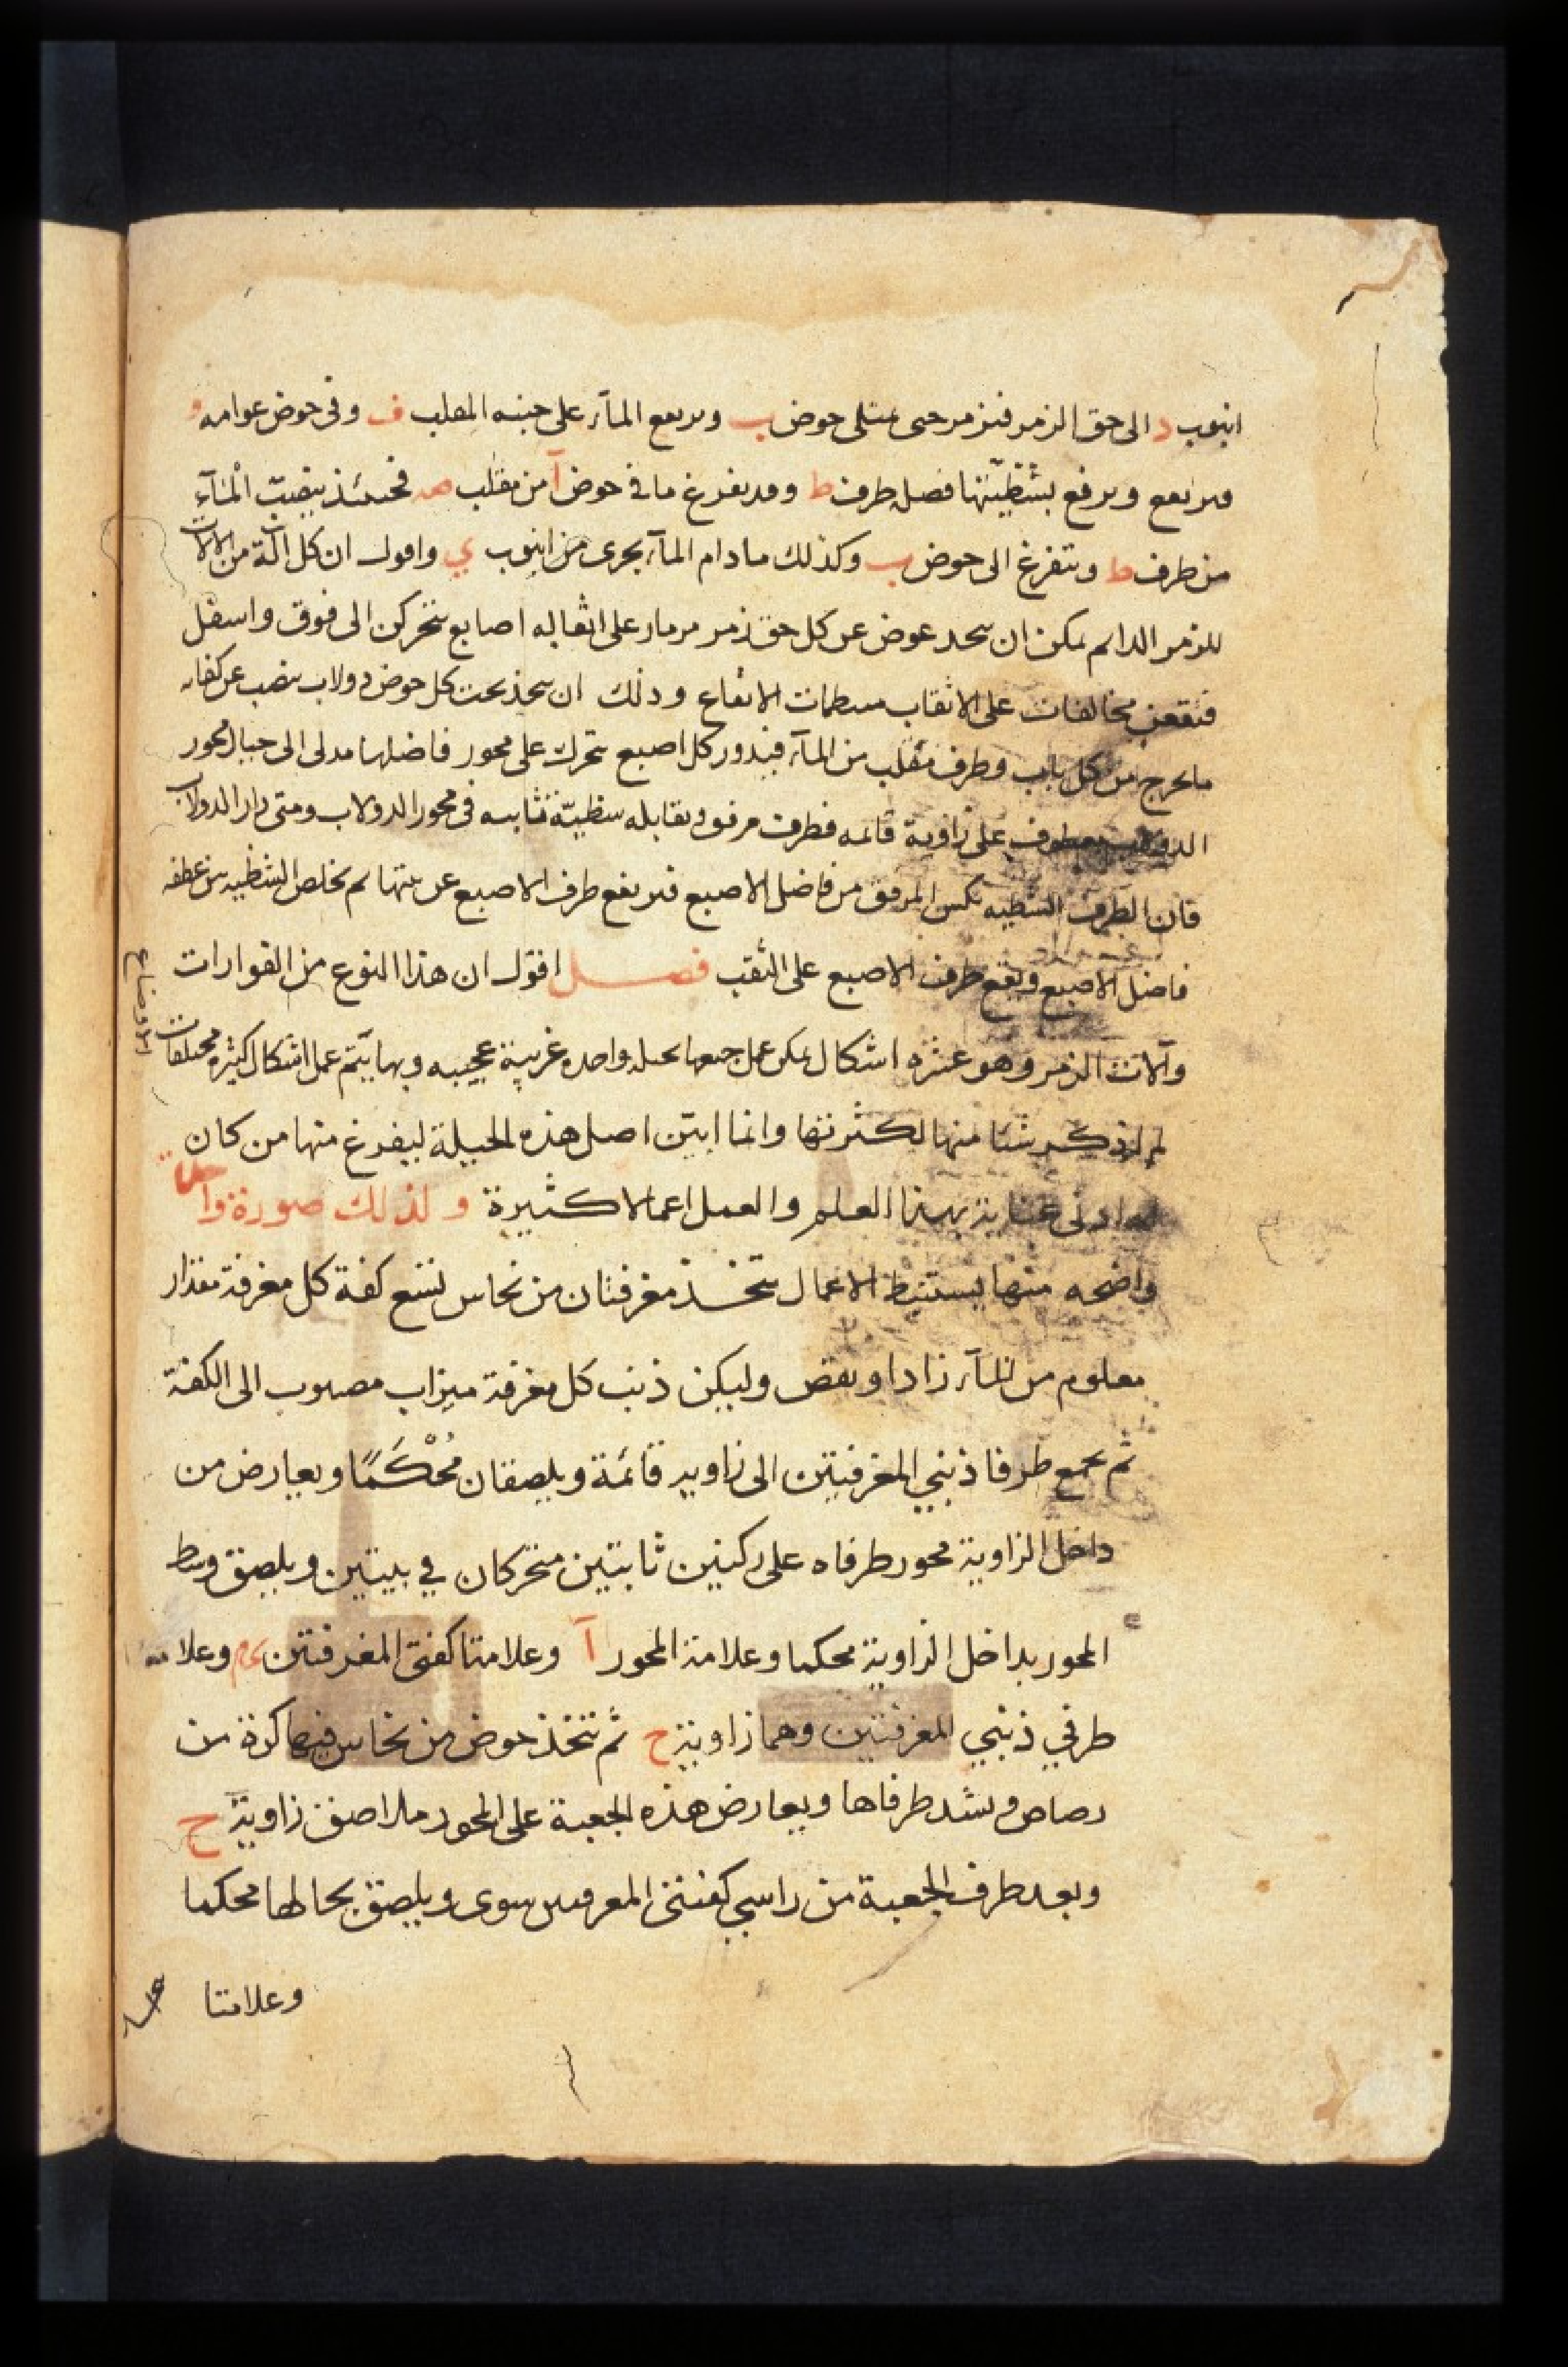 انبوب د الى حق الزمر فيزمر حتى يمتلى حوض ب ويرتفع الماء على جنبه المقلب ف وفى حوض عوامه و
فترتفع وترفع بشظيتها فضل طرف ط وقد يفرغ ما في حوض آ من مقلب هـ فحينئذ ينصب الماء
من طرف ط ويتفرغ الى حوض ب وكذلك مادام الماء يجرى من انبوب ي واقول ان كل آلة من الآلات
للزمر الدايم يمكن ان يتخذ عوض عن كل حق زمر مزمار على اثقابه اصابع تتحركن الى فوق واسفل
فتقعن مخالفات على الاثقاب منتظمات الايقاع وذلك ان يتخذ تحت كل حوض دولاب ينصب على كفاته
ما يخرج من كل باب وطرف مقلب من الماء فيدور كل اصبع تتحرك على محور فاضلها مدلى الى حيال محور
الدولاب معطوف على زاوية قائمه فطرف مرفق ويقابله شظية ثابته فى محور الدولاب ومتى دار الدولاب
فان الطرف الشظيه يكبس المرفق من فاضل الاصبع فيرتفع طرف الاصبع عن ثقبها ثم يخلص الشظيه من عطفه
فاضل الاصبع ويقع طرف الاصبع على الثقب فصل اقول ان هذا النوع من الفوارات
وآلات الزمر وهو عشره اشكال يمكن عمل جميعها بحيله واحده غريبة عجيبه وبها يتم عمل اشكال كثيره مختلفات
الاوضاع
لم اذكر شئا منها لكثرتها وانما ابين اصل هذه الحيلة ليفرغ منها من كان
له ادنى عناية بهذا العلم والعمل اعمالا كثيرة ولذلك صورة واحدة
واضحه منها يستنبط الاعمال تتخذ مغرفتان من نحاس تسع كفة كل مغرفة مقدار
معلوم من الماء زاد او نقص وليكن ذنب كل مغرفة ميزاب مصبوب الى الكفة
ثم يجمع طرفا ذنبي المغرفتين الى زاوية قائمة ويلصقان مُحْكَمًا ويعارض من
داخل الزاوية محور طرفاه على ركنين ثابتين متحركان في بيتين ويلصق وسط
المحور بداخل الزاوية محكما وعلامة المحور آ وعلامتا كفتى المغرفتين وعلامة
طرفي ذنبي المغرفتين وهما زاوية ح ثم تتخذ حوض من نحاس فيها كرة من
رصاص ويشد طرفاها ويعارض هذه الجعبة على المحور ملاصق زاوية ح
وبعد طرف الجعبة من راسي كفتى المغرفتين سوى ويلصق بحالها محكما
وعلامتا